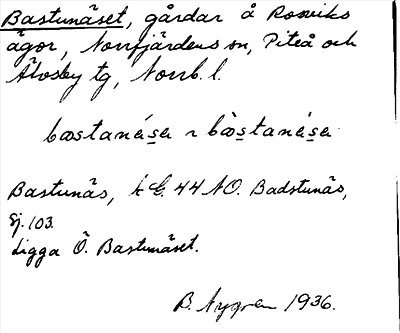 Bastunäset, gårdar å Rosviks
ägor, Norrfjärdens sn, Piteå och
Älvsby tg, Norrb. l.
bastanä́sa ~ bàstanä́sa
Bastunäs, h G. 44 NO. Badstunäs,
Sj. 103.
Ligga Ö. Bastunäset.
B. Nygren 1936.